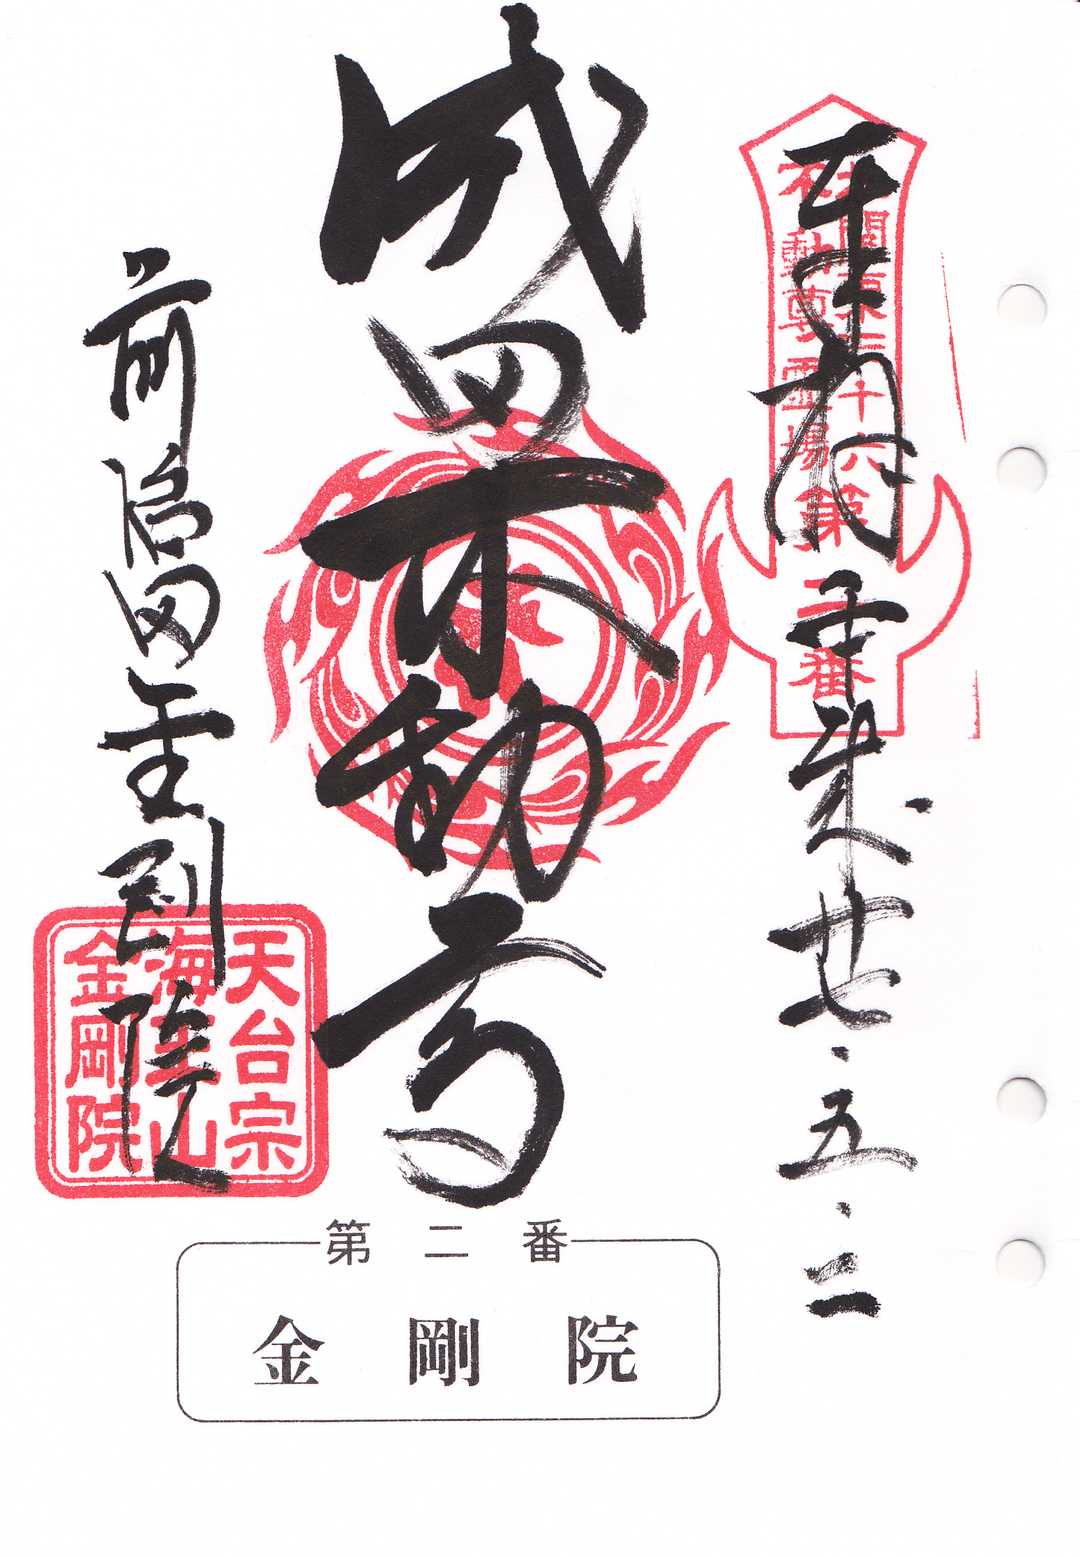 北関東三十六
不動尊霊場
第二番
廿七・五・二
成田不動尊
金剛院
天台宗
金剛院
第二番
金剛院